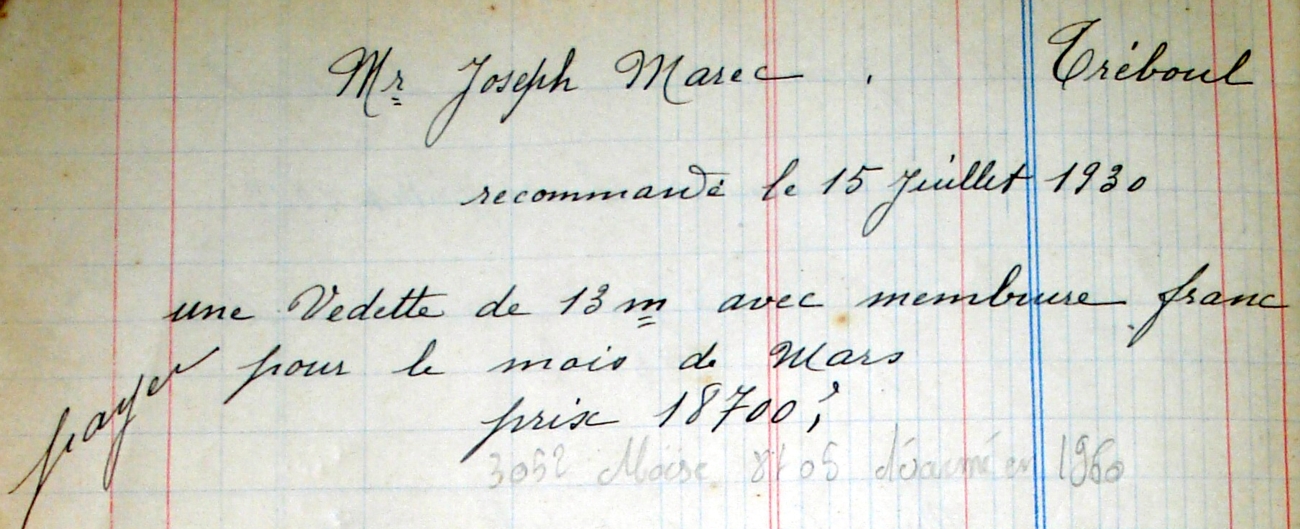 Mr Joseph Marec . Tréboul
recommandé le 15 Juillet 1930
une Vedette de 13 m avec membrure franc
payer pour le mois de Mars
prix 18700
3052 Moïse 8t05 désarmé en 1960